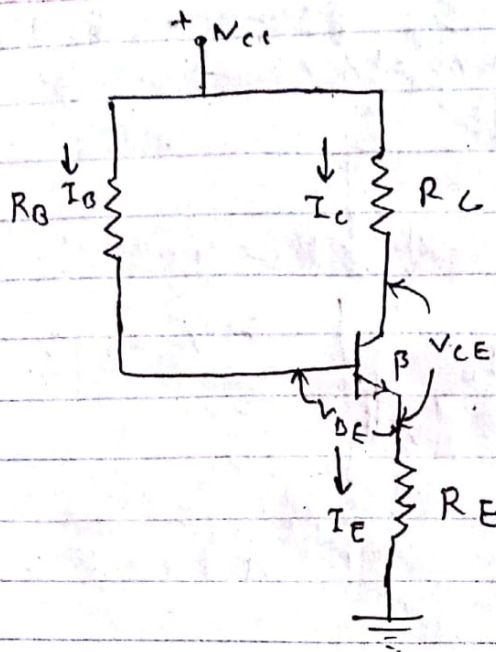 +
Vcc
R_B I_B
I_C
R_C
V_CE
β
V_BE
I_E
R_E